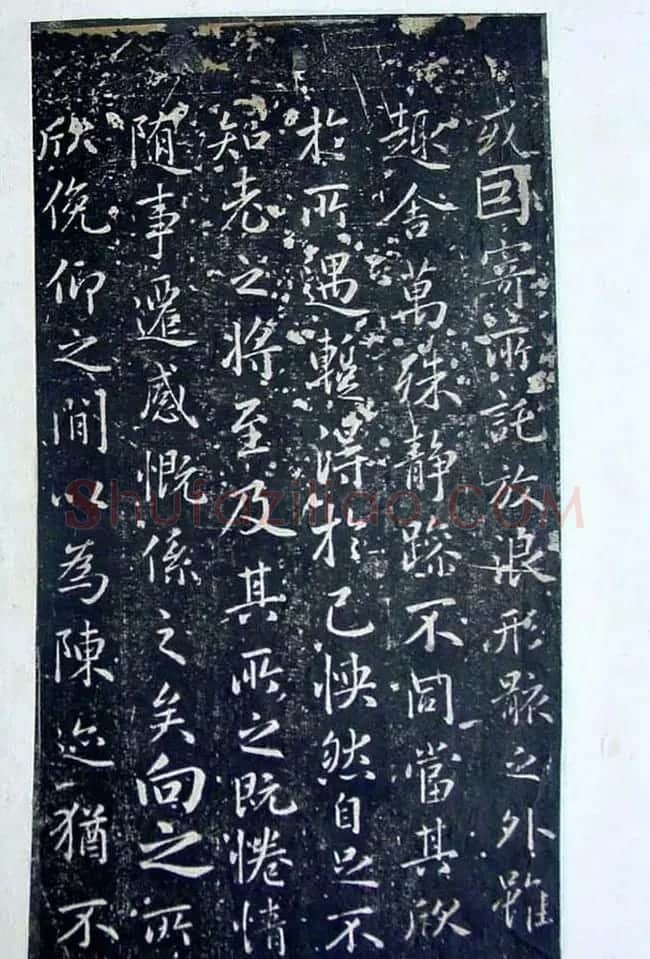 或因寄所託放浪形骸之外雖
趣舍萬殊静躁不同當其欣
於所遇暫得於己怏然自足不
知老之將至及其所之既惓情
随事遷感慨係之矣向之所
欣俛仰之間以為陳迹猶不
Shufaziliao.COM